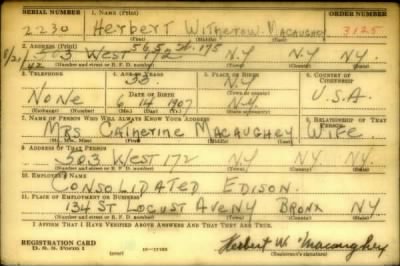 SERIAL NUMBER 1. NAME (Print) ORDER NUMBER
2230 Herbert Witherow Macaughey 3125
(First) (Middle) (Last)
2. ADDRESS (Print) 565 W. 175
503 West 172 N.Y N.Y N.Y.
(Number and street or R. F. D. number) (Town) (County) (State)
3. TELEPHONE 4. AGE IN YEARS 5. PLACE OF BIRTH 6. COUNTRY OF CITIZENSHIP
33 N.Y.
None DATE OF BIRTH (Town or county) U.S.A.
6 14 1907 N.Y.
(Mo.) (Day) (Yr.) (State or country)
7. NAME OF PERSON WHO WILL ALWAYS KNOW YOUR ADDRESS 8. RELATIONSHIP OF THAT PERSON
MRS Catherine Macaughey Wife
(Mr., Mrs., Miss) (First) (Middle) (Last)
9. ADDRESS OF THAT PERSON
503 West 172 NY NY NY.
(Number and street or R. F. D. number) (Town) (County) (State)
10. EMPLOYER'S NAME
CONSOLIDATED EDISON.
11. PLACE OF EMPLOYMENT OR BUSINESS
134 ST LOCUST AVE NY BRONX NY
(Number and street or R. F. D. number) (Town) (County) (State)
I AFFIRM THAT I HAVE VERIFIED ABOVE ANSWERS AND THAT THEY ARE TRUE.
REGISTRATION CARD
D. S. S. Form 1 (over) Herbert W Macaughey
(Registrant's signature)